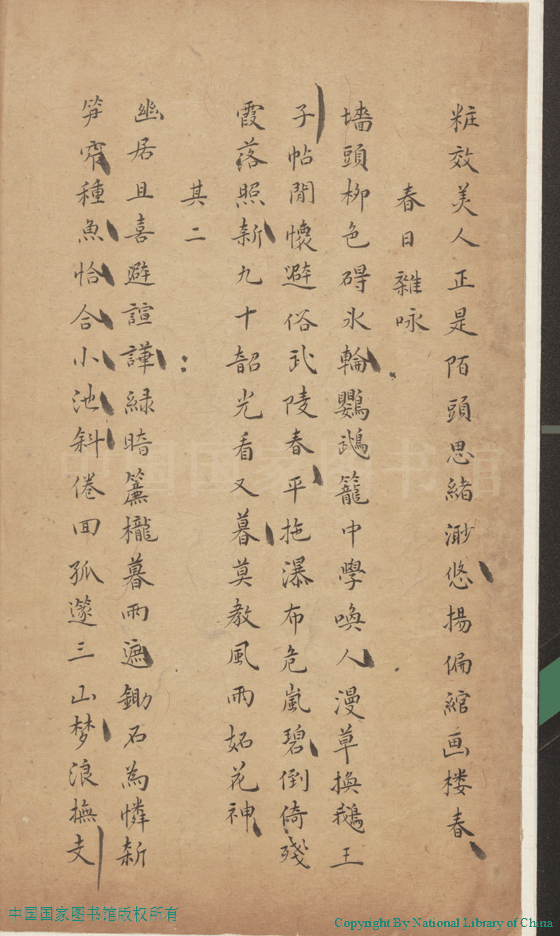 粧效美人正是陌頭思緒渺悠揚偏綰画楼春
春日雜咏
墻頭柳色碍氷輪鸚鵡籠中學喚人漫草換鵝王
子帖閒懷避俗武陵春平拖瀑布危嵐碧倒倚殘
霞落照新九十韶光看又暮莫教風雨妬花神
其二
幽居且喜避諠譁緑暗簾櫳暮雨遮鋤石為憐新
笋窄種魚恰合小池斜倦回孤邃三山梦浪撫支
中国国家图书馆
中国国家图书馆版权所有
Copyright By National Library of China